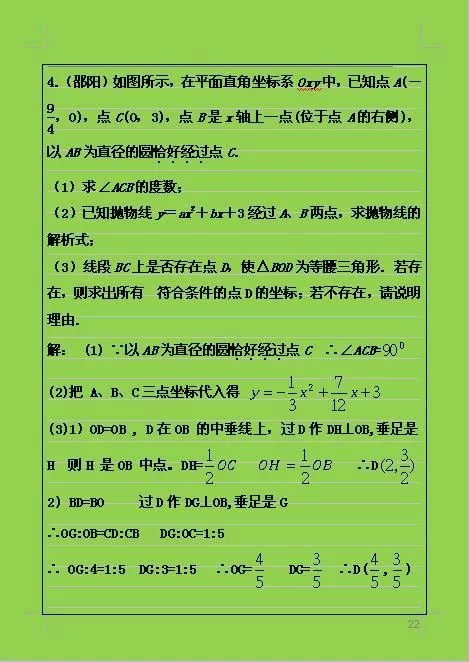 4.（邵阳）如图所示，在平面直角坐标系 Oxy 中，已知点 A(－
9/4，0)，点 C(0，3)，点 B 是 x 轴上一点(位于点 A 的右侧)，
以 AB 为直径的圆恰好经过点 C．
（1）求∠ACB 的度数；
（2）已知抛物线 y＝ax²＋bx＋3 经过 A、B 两点，求抛物线的
解析式；
（3）线段 BC 上是否存在点 D，使△BOD 为等腰三角形．若存
在，则求出所有 符合条件的点 D 的坐标；若不存在，请说明
理由．
解： (1) ∵以 AB 为直径的圆恰好经过点 C ∴∠ACB=90⁰
(2)把 A、B、C 三点坐标代入得 y=－1/3x²+7/12x+3
(3)1) OD=OB , D 在 OB 的中垂线上，过 D 作 DH⊥OB,垂足是
H 则 H 是 OB 中点。DH=1/2OC OH=1/2OB ∴D(2,3/2)
2) BD=BO 过 D 作 DG⊥OB,垂足是 G
∴OG:OB=CD:CB DG:OC=1:5
∴ OG:4=1:5 DG:3=1:5 ∴OG=4/5 DG=3/5 ∴D(4/5,3/5)
22